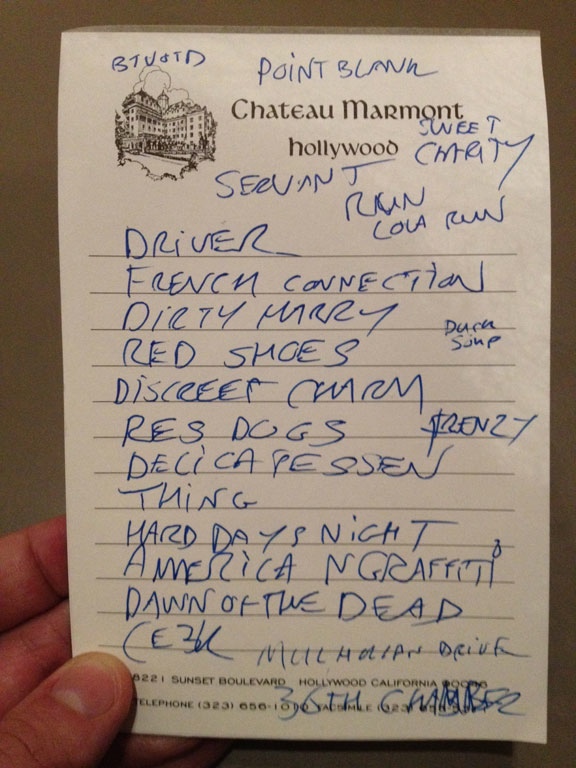 BTVOTD
POINT BLANK
Chateau Marmont
hollywood
SWEET
CHARITY
SERVANT
RUN
LOLA RUN
DRIVER
FRENCH CONNECTION
DIRTY HARRY
DUCK
SOUP
RED SHOES
DISCREET CHARM
RES DOGS
FRENZY
DELICATESSEN
THING
HARD DAYS NIGHT
AMERICAN GRAFFITI
DAWN OF THE DEAD
CE3K
MULHOLLAN DRIVE
8221 SUNSET BOULEVARD HOLLYWOOD CALIFORNIA 90069
36TH CHAMBER
TELEPHONE (323) 656-1010 FACSIMILE (323)